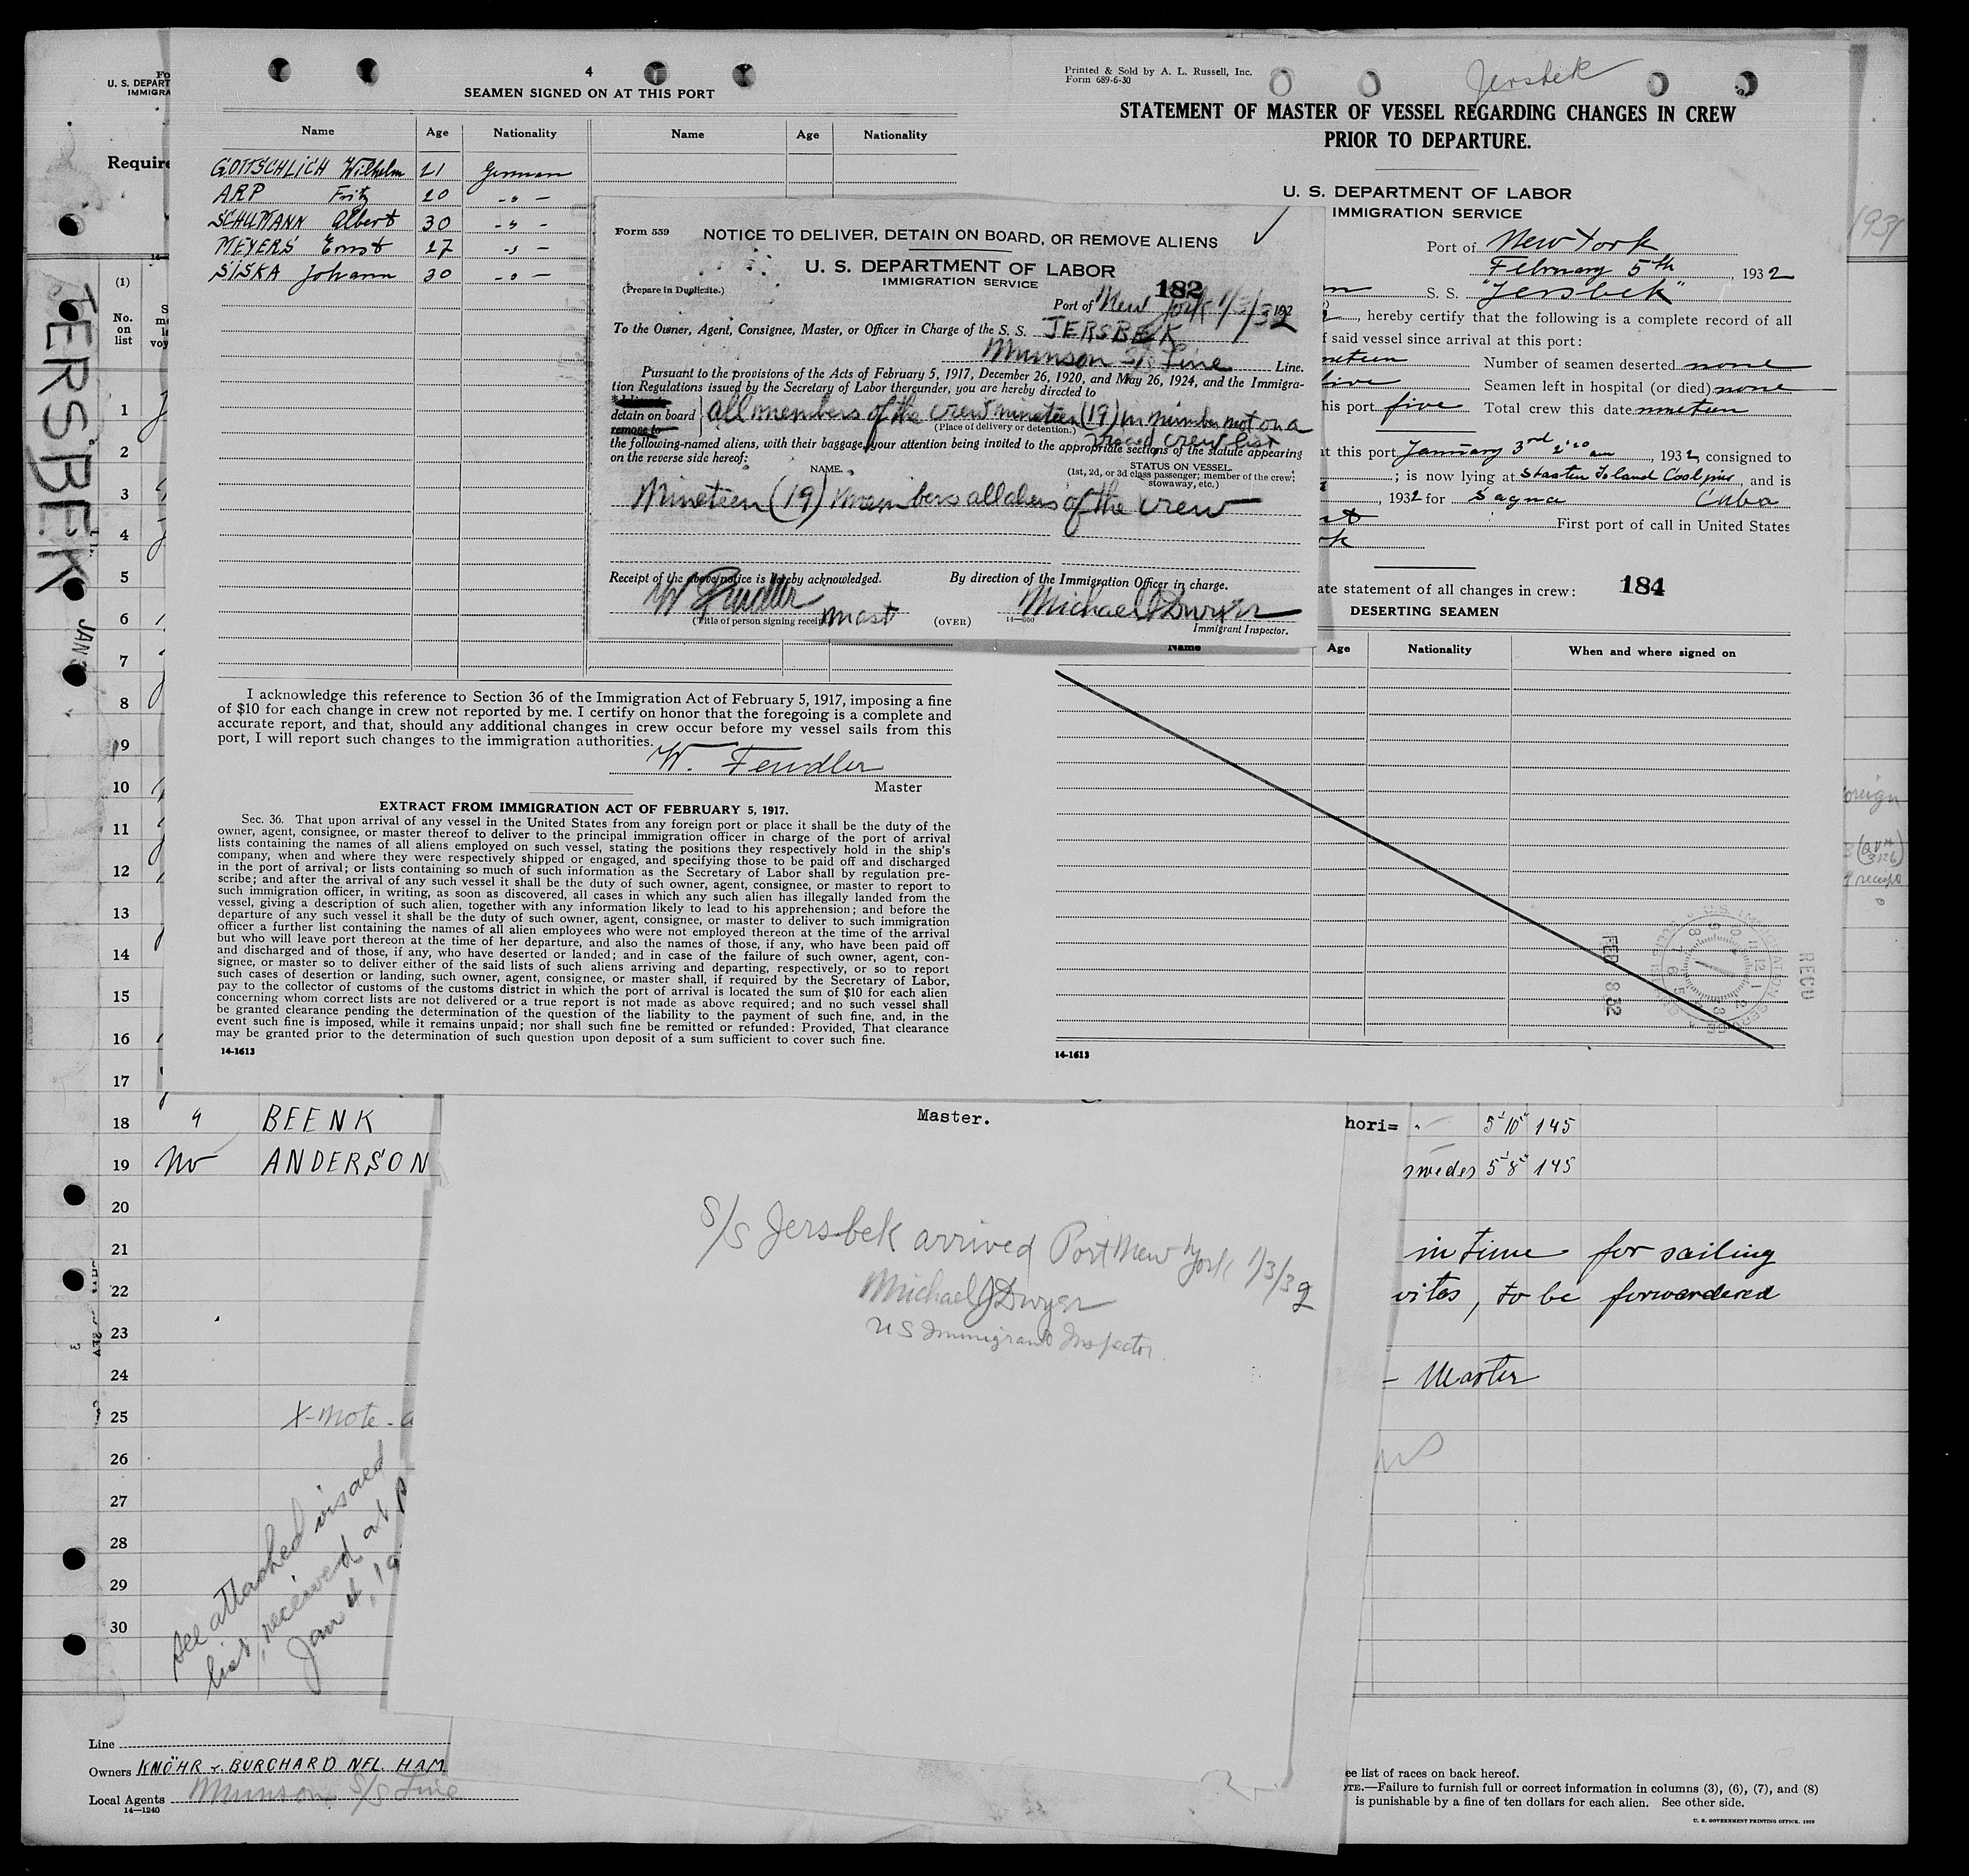 4
SEAMEN SIGNED ON AT THIS PORT
Name Age Nationality Name Age Nationality
GOTTSCHLICH Wilhelm 21 German
ARP Fritz 20 -"-
SCHUMANN Albert 30 -"-
MEYERS Ernst 27 -"-
SISKA Johann 30 -"-
I acknowledge this reference to Section 36 of the Immigration Act of February 5, 1917, imposing a fine
of $10 for each change in crew not reported by me. I certify on honor that the foregoing is a complete and
accurate report, and that, should any additional changes in crew occur before my vessel sails from this
port, I will report such changes to the immigration authorities.
W. Fendler
Master
EXTRACT FROM IMMIGRATION ACT OF FEBRUARY 5, 1917.
Sec. 36. That upon arrival of any vessel in the United States from any foreign port or place it shall be the duty of the
owner, agent, consignee, or master thereof to deliver to the principal immigration officer in charge of the port of arrival
lists containing the names of all aliens employed on such vessel, stating the positions they respectively hold in the ship's
company, when and where they were respectively shipped or engaged, and specifying those to be paid off and discharged
in the port of arrival; or lists containing so much of such information as the Secretary of Labor shall by regulation pre-
scribe; and after the arrival of any such vessel it shall be the duty of such owner, agent, consignee, or master to report to
such immigration officer, in writing, as soon as discovered, all cases in which any such alien has illegally landed from the
vessel, giving a description of such alien, together with any information likely to lead to his apprehension; and before the
departure of any such vessel it shall be the duty of such owner, agent, consignee, or master to deliver to such immigration
officer a further list containing the names of all alien employees who were not employed thereon at the time of the arrival
but who will leave port thereon at the time of her departure, and also the names of those, if any, who have been paid off
and discharged and of those, if any, who have deserted or landed; and in case of the failure of such owner, agent, con-
signee, or master so to deliver either of the said lists of such aliens arriving and departing, respectively, or so to report
such cases of desertion or landing, such owner, agent, consignee, or master shall, if required by the Secretary of Labor,
pay to the collector of customs of the customs district in which the port of arrival is located the sum of $10 for each alien
concerning whom correct lists are not delivered or a true report is not made as above required; and no such vessel shall
be granted clearance pending the determination of the question of the liability to the payment of such fine, and, in the
event such fine is imposed, while it remains unpaid; nor shall such fine be remitted or refunded: Provided, That clearance
may be granted prior to the determination of such question upon deposit of a sum sufficient to cover such fine.
14-1613
Form 559
NOTICE TO DELIVER, DETAIN ON BOARD, OR REMOVE ALIENS
U. S. DEPARTMENT OF LABOR
IMMIGRATION SERVICE
(Prepare in Duplicate.)
182
Port of New York 1/3/32 192
To the Owner, Agent, Consignee, Master, or Officer in Charge of the S. S. JERSBEK
Munson S/S Line Line.
Pursuant to the provisions of the Acts of February 5, 1917, December 26, 1920, and May 26, 1924, and the Immigra-
tion Regulations issued by the Secretary of Labor thereunder, you are hereby directed to
detain on board all members of the crew nineteen (19) in number not on a
remove to (Place of delivery or detention.) visaed crew list
the following-named aliens, with their baggage, your attention being invited to the appropriate sections of the statute appearing
on the reverse side hereof:
NAME. STATUS ON VESSEL.
(1st, 2d, or 3d class passenger; member of the crew;
stowaway, etc.)
Nineteen (19) members all aliens of the crew
Receipt of the above notice is hereby acknowledged. By direction of the Immigration Officer in charge.
W Fendler Mast Michael J Dwyer
(Title of person signing receipt) (OVER) 14-560 Immigrant Inspector.
Printed & Sold by A. L. Russell, Inc.
Form 689-6-30
Jersbek
STATEMENT OF MASTER OF VESSEL REGARDING CHANGES IN CREW
PRIOR TO DEPARTURE.
U. S. DEPARTMENT OF LABOR
IMMIGRATION SERVICE
Port of New York
February 5th, 1932
S. S. "Jersbek"
, hereby certify that the following is a complete record of all
f said vessel since arrival at this port:
neteen Number of seamen deserted none
five Seamen left in hospital (or died) none
his port five Total crew this date nineteen
at this port January 3rd 2:20 am, 1932, consigned to
; is now lying at Staaten Island Coalpier, and is
, 1932 for Sagua Cuba
First port of call in United States
rk
ate statement of all changes in crew: 184
DESERTING SEAMEN
Name Age Nationality When and where signed on
RECD
FEB 8 32
14-1613
Fo
U. S. DEPART
IMMIGRA
Require
1931
JERSBEK
JAN 3
(1)
No.
on
list
1
2
3
4
5
6
7
8
9
10
11
12
13
14
15
16
17
18 " BEENK hori= 5'10" 145
19 No ANDERSON swedes 5'8" 145
20
21 in time for sailing
22 to be forwardered
23
24 - Master
25 X-Note -
26
27
28
29
30
See attached visaed
list, received at
Jan 4, 19
Master.
S/S Jersbek arrived Port New York 1/3/32
Michael J Dwyer
US Immigrant Inspector.
Line
Owners KNÖHR & BURCHARD NFL. HAM
Local Agents Munson S/S Line
14-1240
ee list of races on back hereof.
OTE.—Failure to furnish full or correct information in columns (3), (6), (7), and (8)
is punishable by a fine of ten dollars for each alien. See other side.
U. S. GOVERNMENT PRINTING OFFICE. 1929